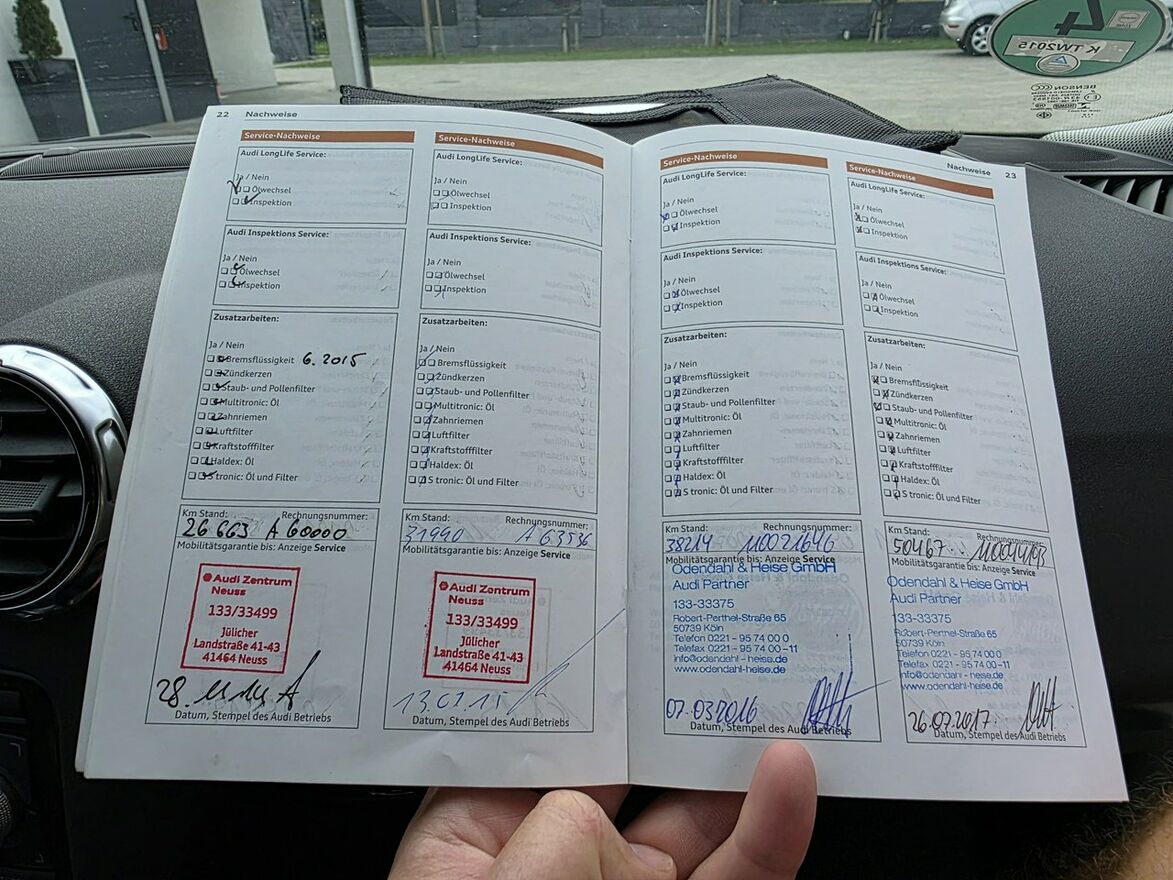 22 Nachweise
Service-Nachweise
Audi LongLife Service:
Ja / Nein
Ölwechsel
Inspektion
Audi Inspektions Service:
Ja / Nein
Ölwechsel
Inspektion
Zusatzarbeiten:
Ja / Nein
Bremsflüssigkeit 6.2015
Zündkerzen
Staub- und Pollenfilter
Multitronic: Öl
Zahnriemen
Luftfilter
Kraftstofffilter
Haldex: Öl
S tronic: Öl und Filter
Km Stand: Rechnungsnummer:
26 663 A 60000
Mobilitätsgarantie bis: Anzeige Service
Audi Zentrum
Neuss
133/33499
Jülicher
Landstraße 41-43
41464 Neuss
28.11.14
Datum, Stempel des Audi Betriebs
Service-Nachweise
Audi LongLife Service:
Ja / Nein
Ölwechsel
Inspektion
Audi Inspektions Service:
Ja / Nein
Ölwechsel
Inspektion
Zusatzarbeiten:
Ja / Nein
Bremsflüssigkeit
Zündkerzen
Staub- und Pollenfilter
Multitronic: Öl
Zahnriemen
Luftfilter
Kraftstofffilter
Haldex: Öl
S tronic: Öl und Filter
Km Stand: Rechnungsnummer:
31990 A 63536
Mobilitätsgarantie bis: Anzeige Service
Audi Zentrum
Neuss
133/33499
Jülicher
Landstraße 41-43
41464 Neuss
13.07.15
Datum, Stempel des Audi Betriebs
Service-Nachweise
Audi LongLife Service:
Ja / Nein
Ölwechsel
Inspektion
Audi Inspektions Service:
Ja / Nein
Ölwechsel
Inspektion
Zusatzarbeiten:
Ja / Nein
Bremsflüssigkeit
Zündkerzen
Staub- und Pollenfilter
Multitronic: Öl
Zahnriemen
Luftfilter
Kraftstofffilter
Haldex: Öl
S tronic: Öl und Filter
Km Stand: Rechnungsnummer:
38214 110021646
Mobilitätsgarantie bis: Anzeige Service
Odendahl & Heise GmbH
Audi Partner
133-33375
Robert-Perthel-Straße 65
50739 Köln
Telefon 0221 - 95 74 00 0
Telefax 0221 - 95 74 00 -11
info@odendahl - heise.de
www.odendahl-heise.de
07.03.2016
Datum, Stempel des Audi Betriebs
Nachweise 23
Service-Nachweise
Audi LongLife Service:
Ja / Nein
Ölwechsel
Inspektion
Audi Inspektions Service:
Ja / Nein
Ölwechsel
Inspektion
Zusatzarbeiten:
Ja / Nein
Bremsflüssigkeit
Zündkerzen
Staub- und Pollenfilter
Multitronic: Öl
Zahnriemen
Luftfilter
Kraftstofffilter
Haldex: Öl
S tronic: Öl und Filter
Km Stand: Rechnungsnummer:
50467
Mobilitätsgarantie bis: Anzeige Service
Odendahl & Heise GmbH
Audi Partner
133-33375
Robert-Perthel-Straße 65
50739 Köln
Telefon 0221 - 95 74 00 0
Telefax 0221 - 95 74 00 -11
info@odendahl - heise.de
www.odendahl-heise.de
26.07.2017
Datum, Stempel des Audi Betriebs
4
K TW2015
BENSON